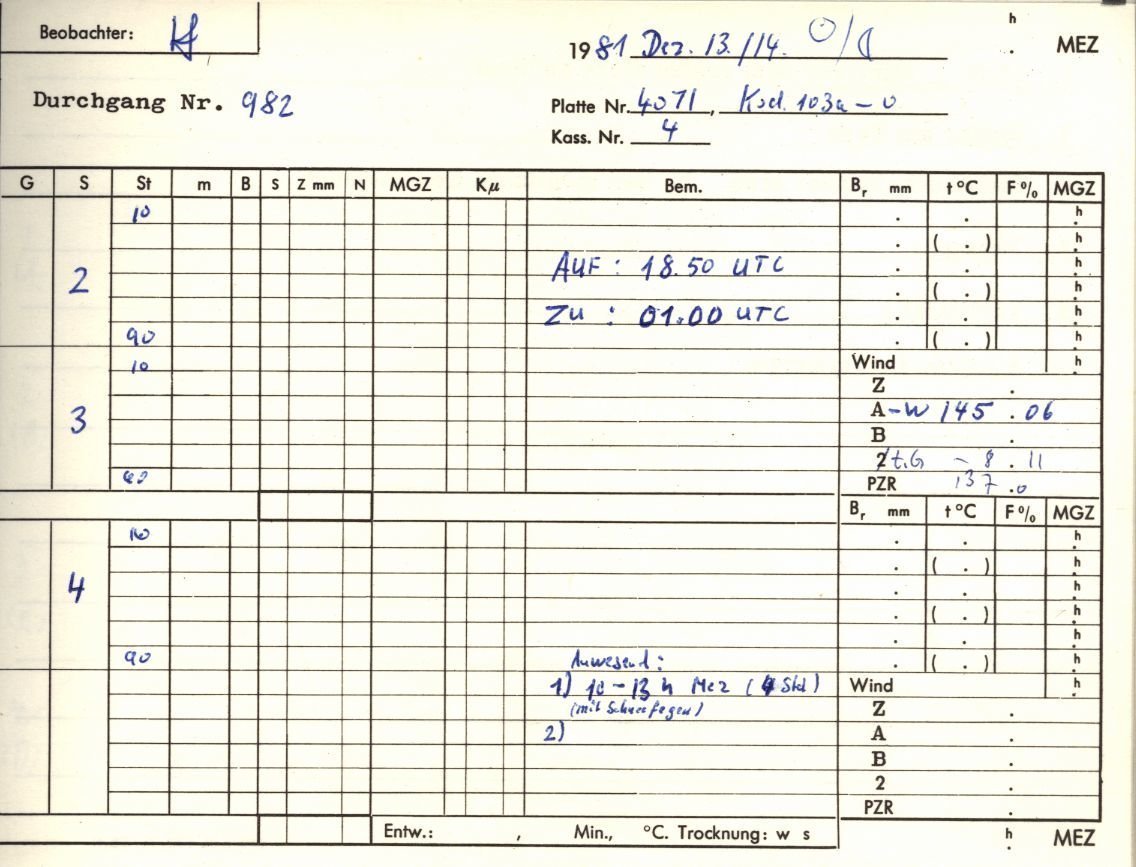 Beobachter:
h
1981 Dez. 13./14. ☉/☾ . MEZ
Durchgang Nr. 982
Platte Nr. 4071, Kod. 103a-0
Kass. Nr. 4
G S St m B S Z mm N MGZ Kμ Bem. Br mm t °C F% MGZ
10 . . h
. ( . ) h
2 AUF : 18.50 UTC . . h
. ( . ) h
ZU : 01.00 UTC . . h
90 . ( . ) h
10 Wind h
Z .
3 A -W 145 . 06
B .
2 t.G - 8 . 11
PZR 137 . 0
Br mm t °C F% MGZ
10 . . h
. ( . ) h
4 . . h
. ( . ) h
. . h
90 Anwesend: . ( . ) h
1) 10-13 h Mez (4 Std) Wind h
(mit Schneefegen) Z .
2) A .
B .
2 .
PZR .
Entw.: , Min., °C. Trocknung: w s h
. MEZ